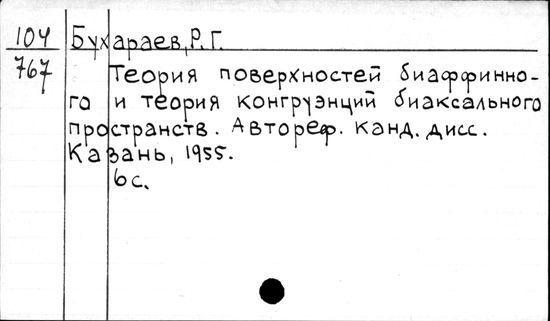 104 Бухараев, Р. Г.
767 Теория поверхностей биаффинно-
го и теория конгруэнций биаксального
пространств. Автореф. канд. дисс.
Казань, 1955.
6 с.